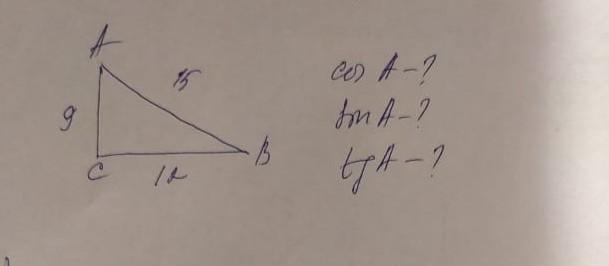 A
15
cos A - ?
9
sin A - ?
C
12
B
tg A - ?